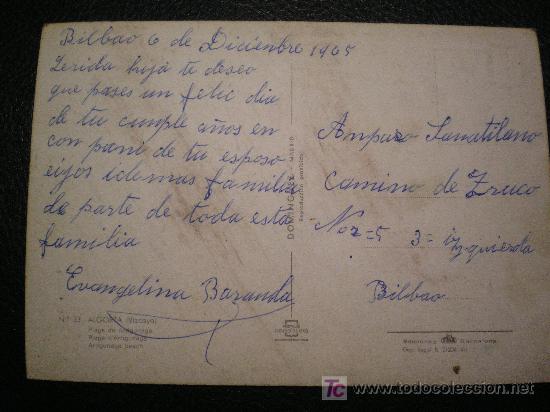 Bilbao 6 de Diciembre 1965
Zerida hija te deseo
que pases un felic dia
de tu cumple años en
con pani de tu esposo
eijos idemas familia
de parte de toda esta
familia
Evangelina Baranda
Nº 33 ALGORTA (Vizcaya)
Playa de Arrigunaga
Plage d'Arrigunaga
Arrigunaga beach
DOMINGUEZ MADRID
Reproducción prohibida
Amparo Sanatilano
Camino de Zruco
Noz=5 3=izquierda
Bilbao
todocoleccion
todocoleccion.net